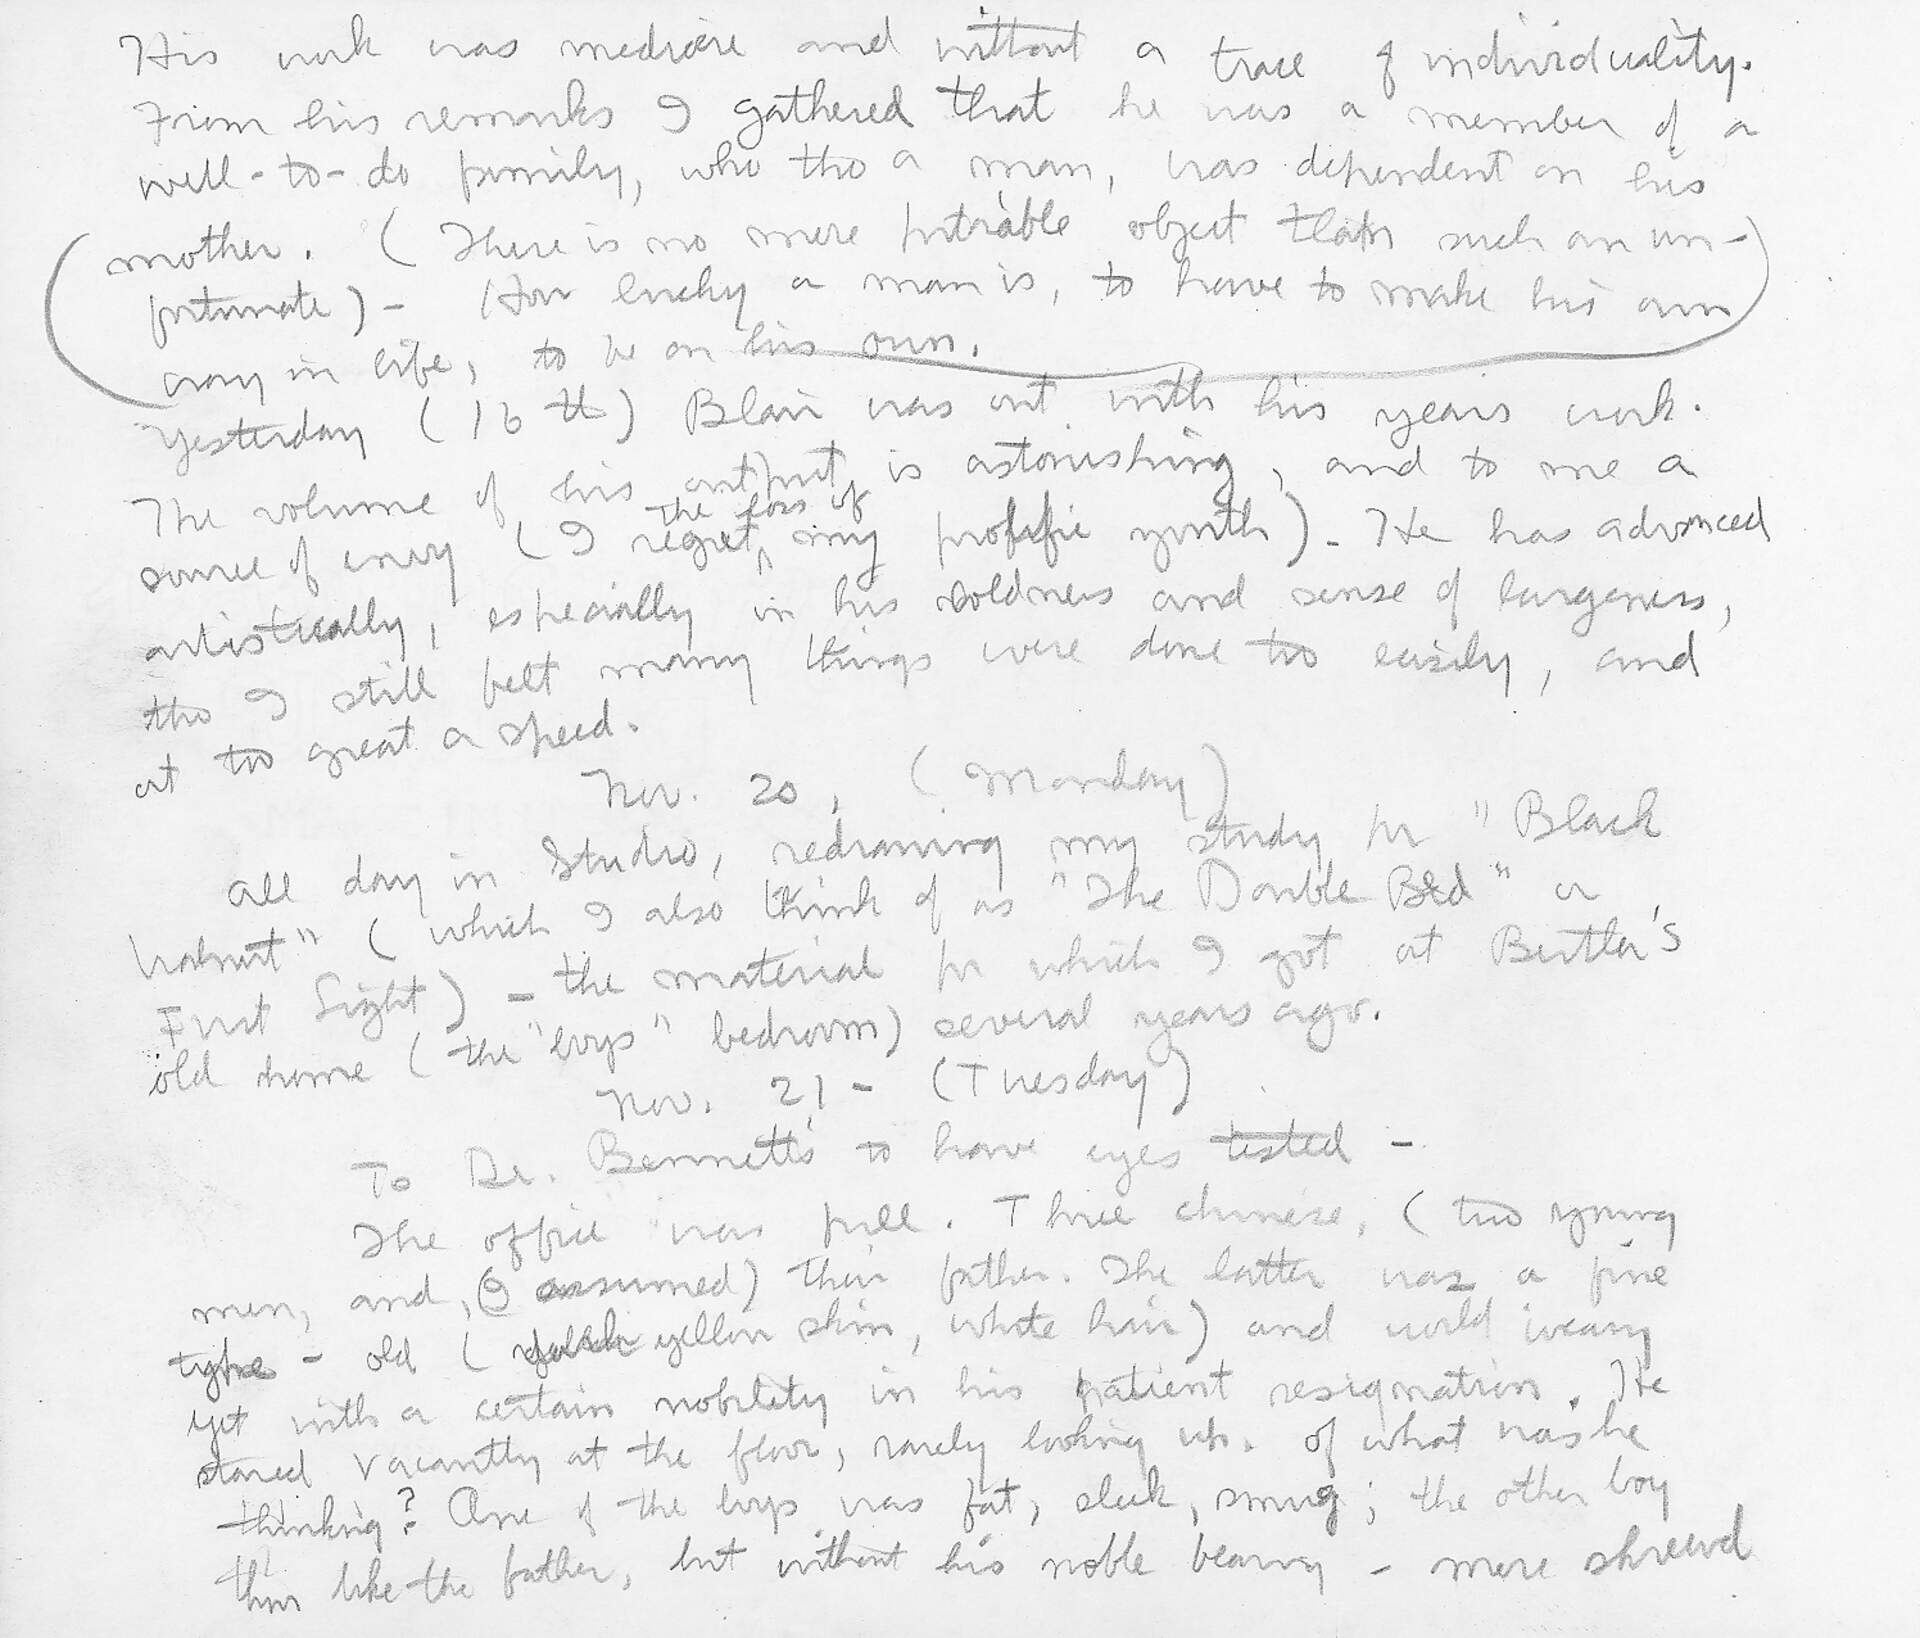 His work was mediocre and without a trace of individuality.
From his remarks I gathered that he was a member of a
well-to-do family, who tho a man, was dependent on his
mother. (There is no more pitiable object than such an un-
fortunate) - How lucky a man is, to have to make his own
way in life, to be on his own.
Yesterday (16th) Blair was out with his years work.
The volume of his output is astonishing, and to me a
source of envy (I regret the loss of my prolific youth). He has advanced
artistically, especially in his boldness and sense of largeness,
tho I still felt many things were done too easily, and
at too great a speed.
Nov. 20, (Monday)
All day in Studio, redrawing my study for "Black
Walnut" (which I also think of as "The Double Bed" or
First Light) - the material for which I got at Butler's
old home (the "boys" bedroom) several years ago.
Nov. 21 - (Tuesday)
To Dr. Bennett's to have eyes tested -
The office was full. Three chinese, (two young
men, and, (I assumed) their father. The latter was a fine
type - old (yellow skin, white hair) and world weary
yet with a certain nobility in his patient resignation. He
stared vacantly at the floor, rarely looking up. Of what was he
thinking? One of the boys was fat, sleek, smug; the other boy
thin like the father, but without his noble bearing - more shrewd